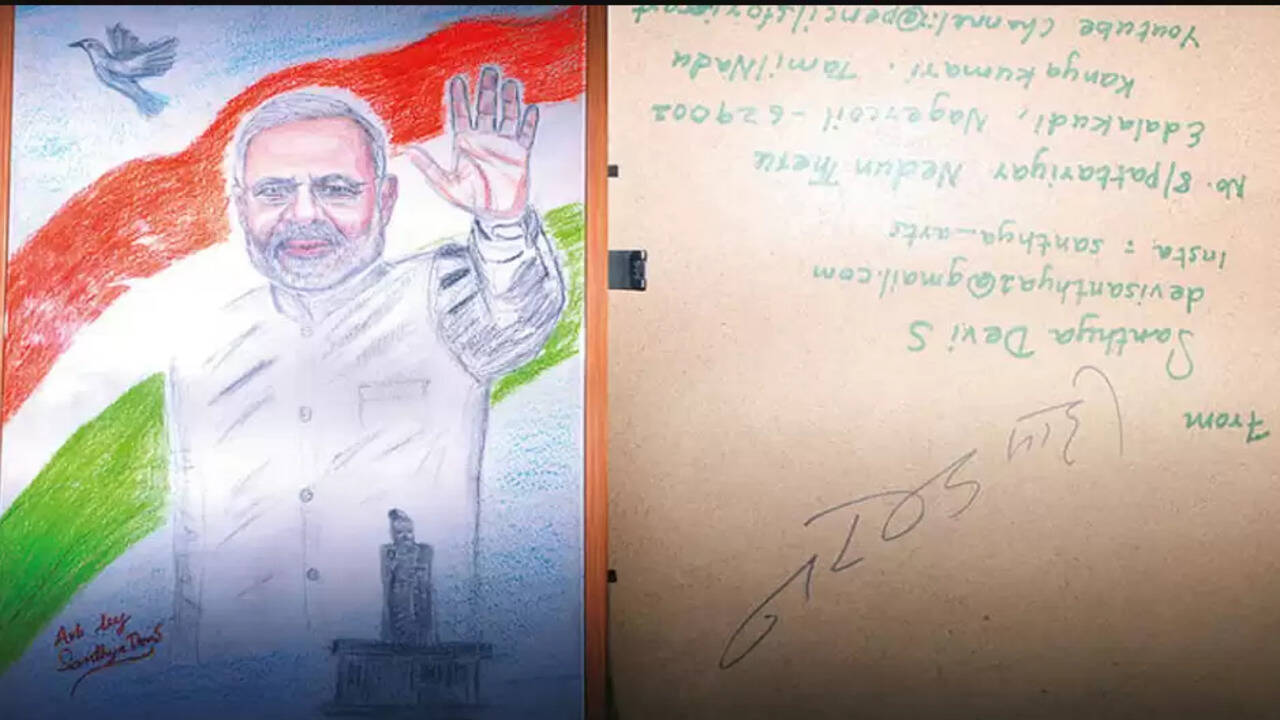 Art by
Santhya Devi S
From
Santhya Devi S
devisanthya2@gmail.com
Insta : santhya_arts
No. 8/pattariyar Nedun Theru
Edalakudi, Nagercoil - 629002
Kanyakumari. TamilNadu
Youtube Channel: